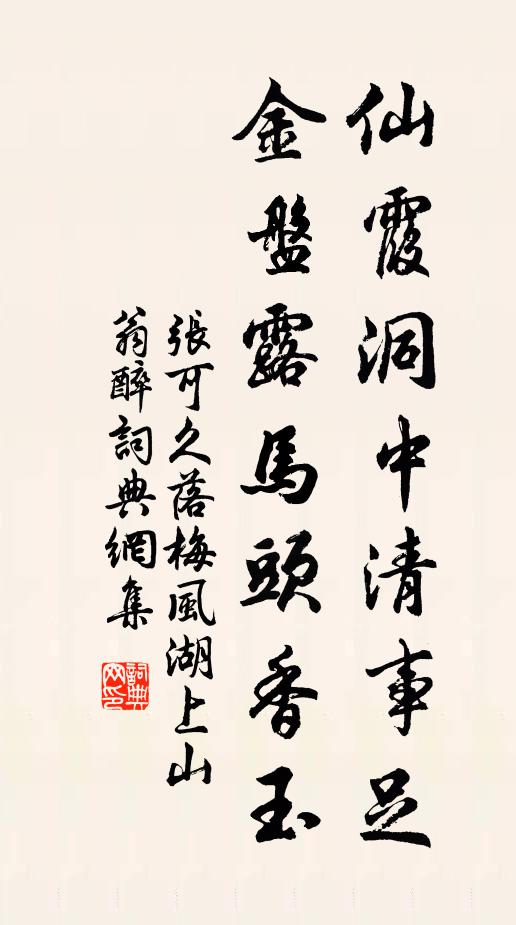 仙霞洞中清事足
金盤露馬頭香玉
張可久落梅風湖上山
翁醉詞典網集
詞典网印